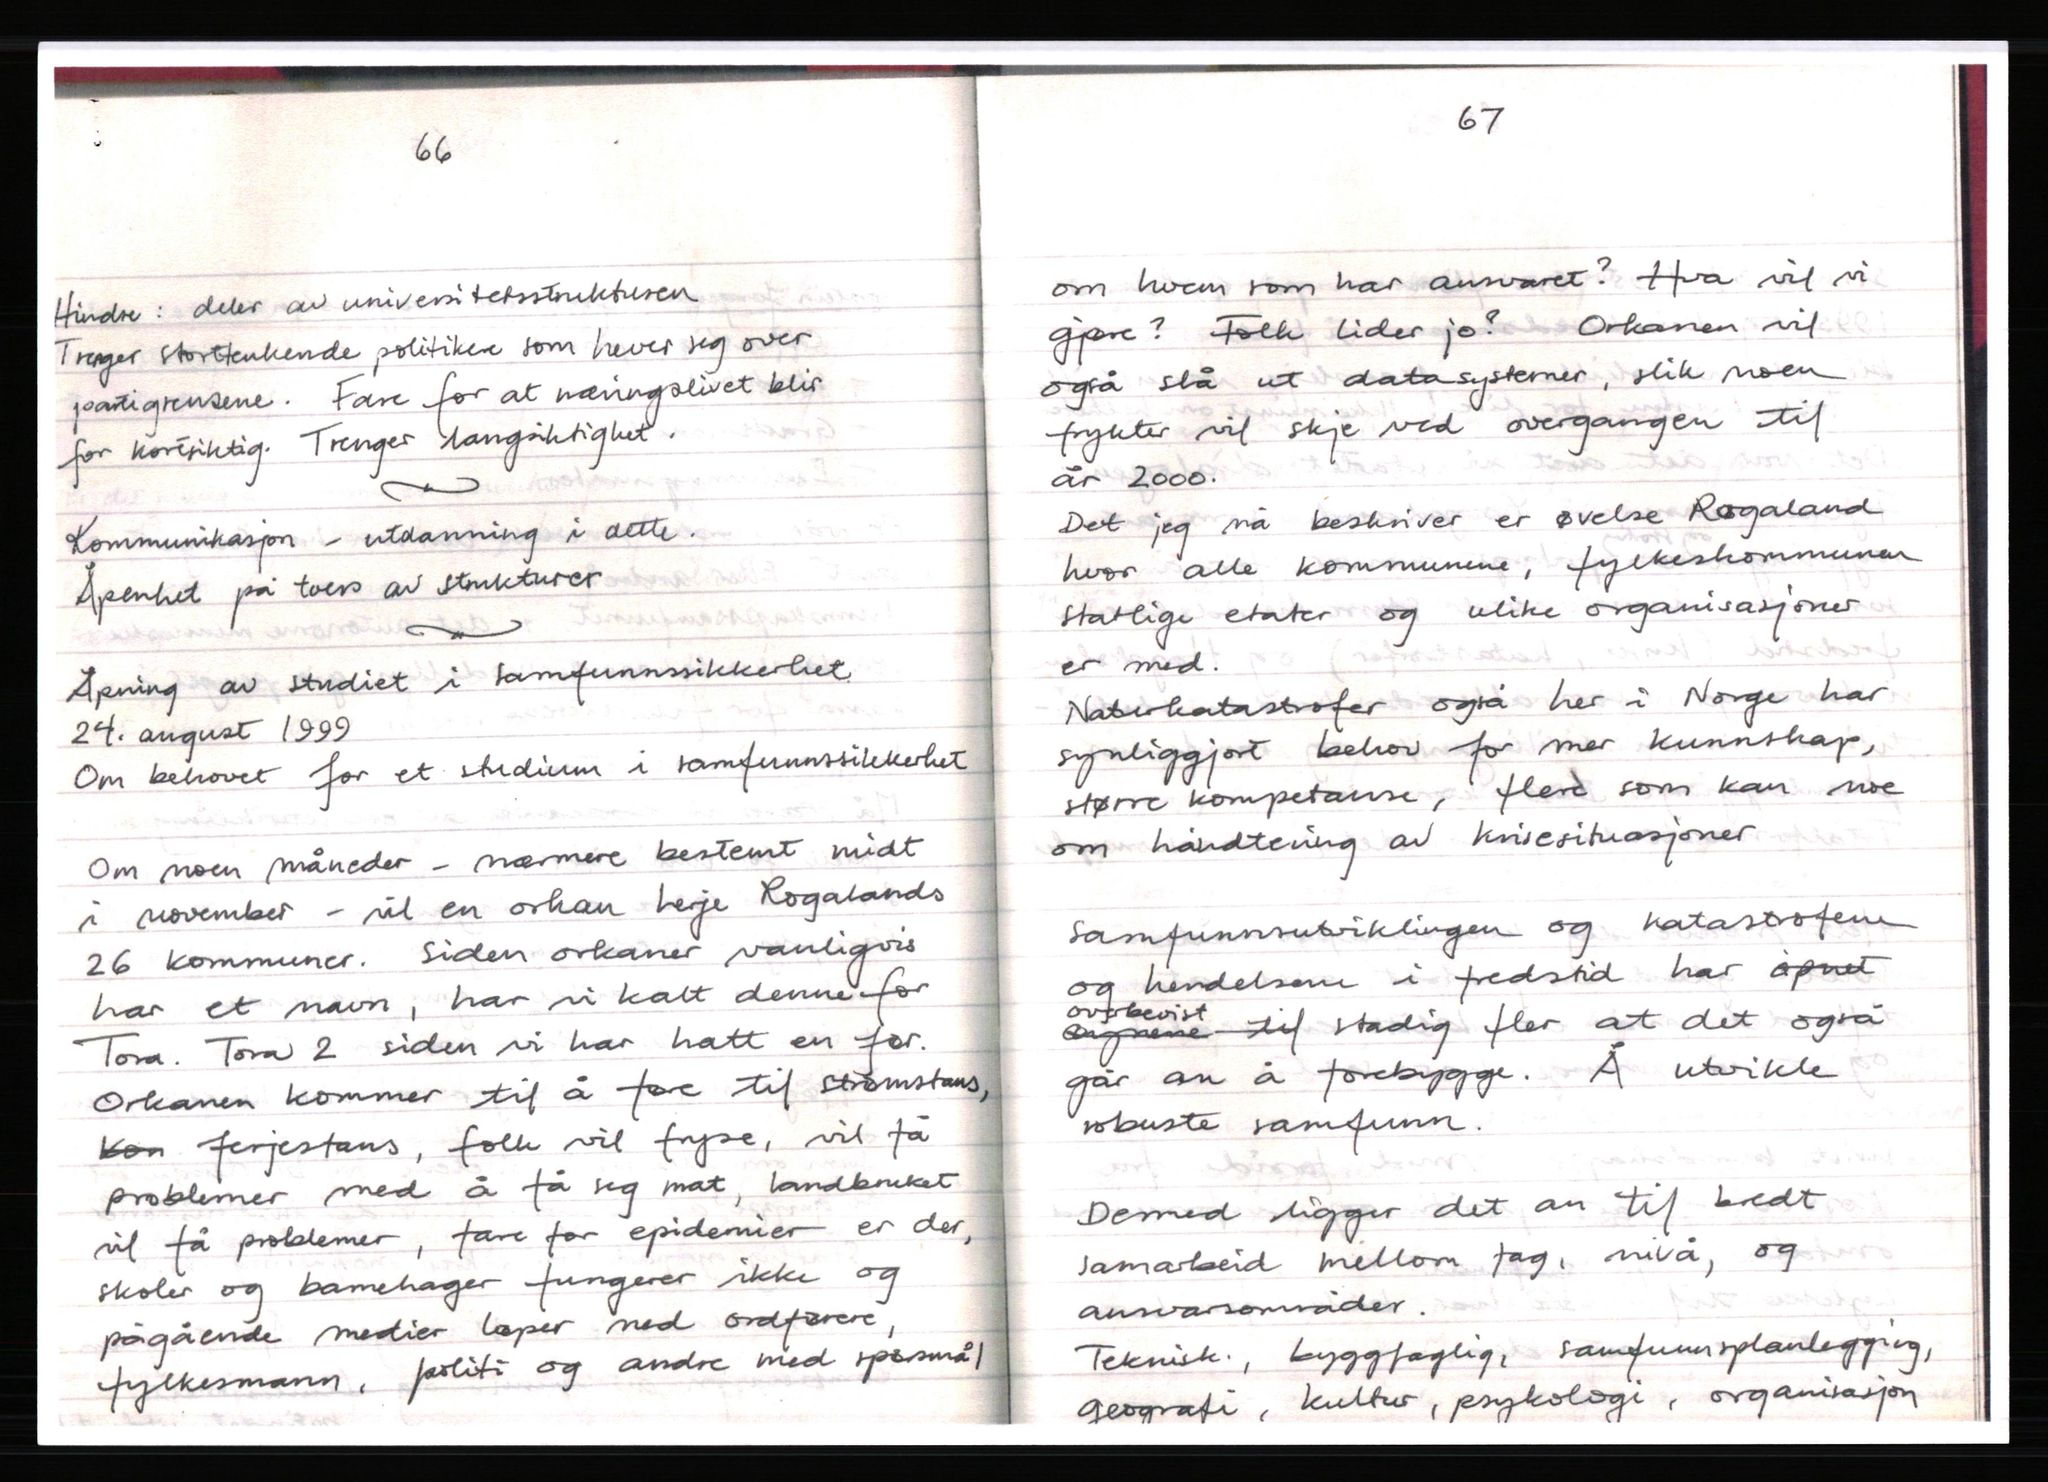 66
Hindre: deler av universitetsstrukturen
Trenger stortenkende politikere som hever seg over
partigrensene. Fare for at næringslivet blir
for kortsiktig. Trenger langsiktighet.
Kommunikasjon - utdanning i dette.
Åpenhet på tvers av strukturer
Åpning av studiet i samfunnssikkerhet
24. august 1999
Om behovet for et studium i samfunnssikkerhet
Om noen måneder - nærmere bestemt midt
i november - vil en orkan herje Rogalands
26 kommuner. Siden orkaner vanligvis
har et navn, har vi kalt denne for
Tora. Tora 2 siden vi har hatt en før.
Orkanen kommer til å føre til strømstans,
Kon ferjestans, folk vil fryse, vil få
problemer med å få seg mat, landbruket
vil få problemer, fare for epidemier er der,
skoler og barnehager fungerer ikke og
pågående medier løper ned ordførere,
fylkesmann, politi og andre med spørsmål
67
om hvem som har ansvaret? Hva vil vi
gjøre? Folk lider jo? Orkanen vil
også slå ut datasystemer, slik noen
frykter vil skje ved overgangen til
år 2000.
Det jeg nå beskriver er øvelse Rogaland
hvor alle kommunene, fylkeskommunen
statlige etater og ulike organisasjoner
er med.
Naturkatastrofer også her i Norge har
synliggjort behov for mer kunnskap,
større kompetanse, flere som kan noe
om håndtering av krisesituasjoner
Samfunnsutviklingen og katastrofene
og hendelsene i fredstid har åpnet
overbevist
øynene til stadig fler at det også
går an å forebygge. Å utvikle
robuste samfunn.
Dermed ligger det an til bredt
samarbeid mellom fag, nivå, og
ansvarsområder.
Teknisk., byggfaglig, samfunnsplanlegging,
geografi, kultur, psykologi, organisasjon